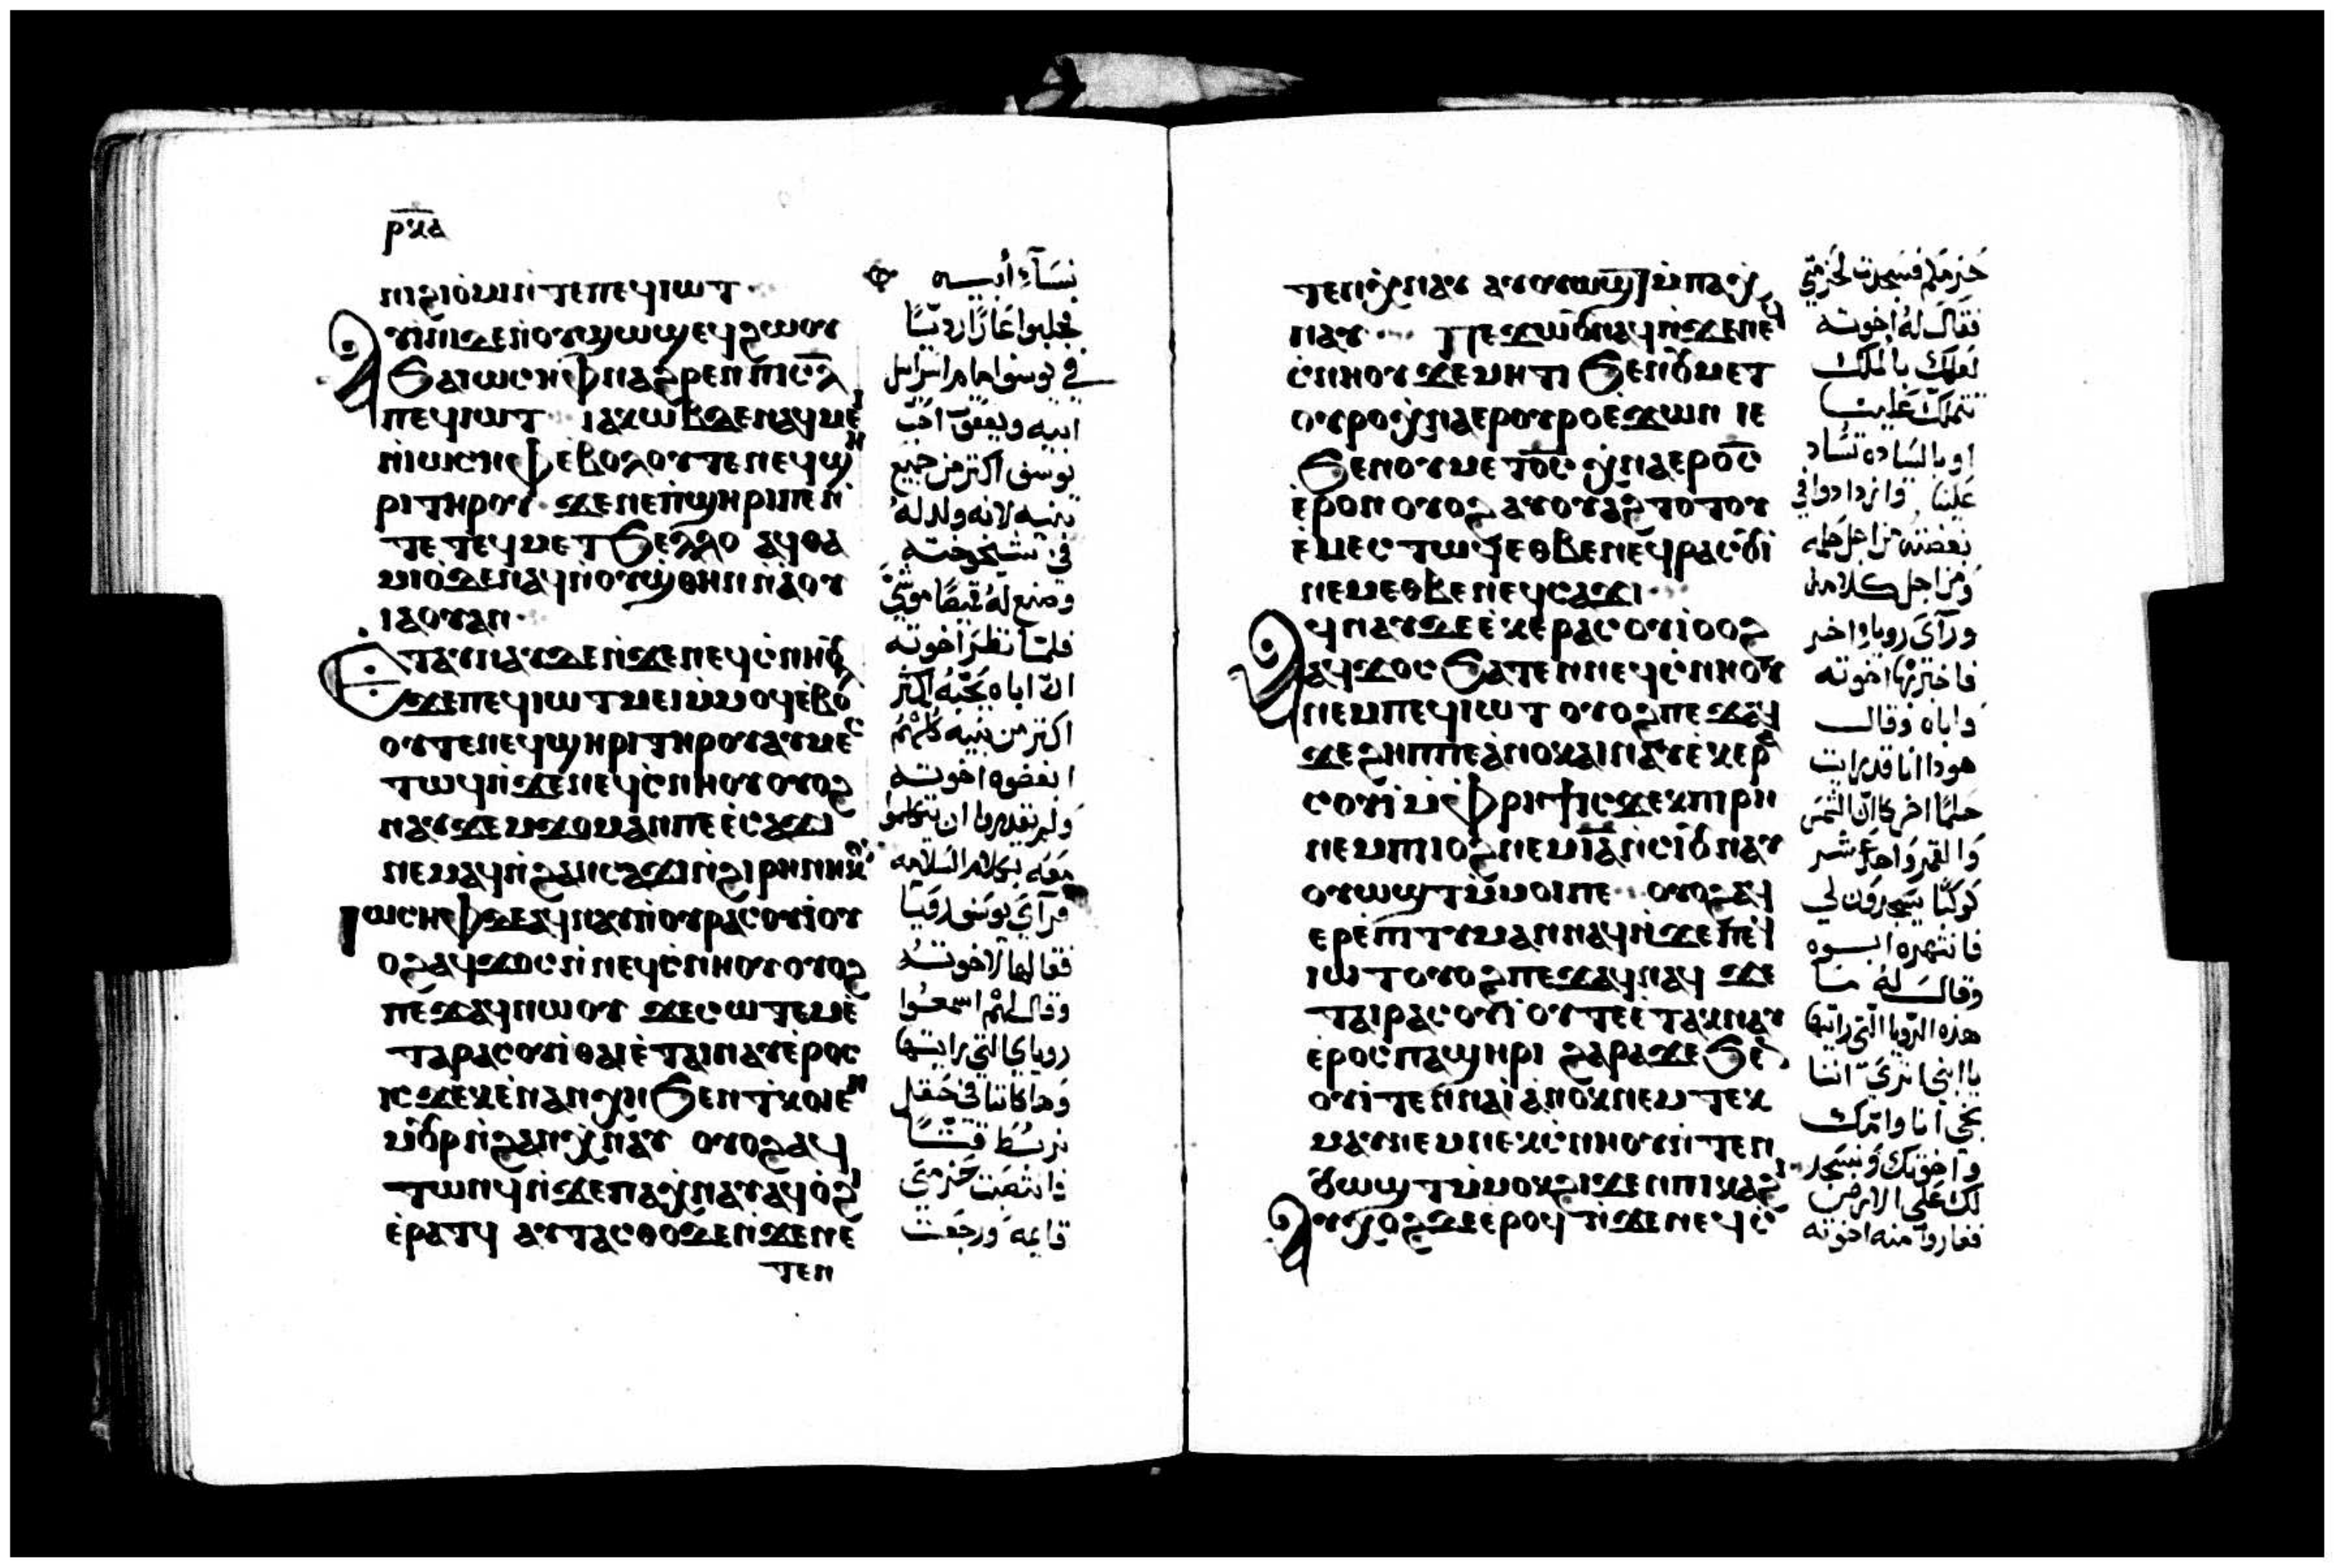 ⲣⲝⲁ
ⲛⲓϩⲓⲟ̇ⲙⲓ ⲛ̇ⲧⲉ ⲡⲉϥⲓⲱⲧ
ⲁⲩⲓ̇ⲛⲓ ⲇⲉ ⲛ̇ⲟⲩϣⲱϣ ⲉϥϩⲱⲟⲩ
ϧⲁ ⲓⲱⲥⲏⲫ ⲛⲁϩⲣⲉⲛ ⲡⲓⲥ̅ⲗ
ⲡⲉϥⲓⲱⲧ ⲓⲁⲕⲱⲃ ⲇⲉ ⲛⲁϥⲙⲉⲓ
ⲛ̇ⲓⲱⲥⲏⲫ ⲉ̇ⲃⲟⲗⲟⲩⲧⲉ ⲛⲉϥϣⲏ
ⲣⲓ ⲧⲏⲣⲟⲩ ϫⲉ ⲛⲉ ⲡ̇ϣⲏⲣⲓ ⲡⲉ ⲛ̇
ⲧⲉ ⲧⲉϥⲙⲉⲧϧⲉⲗⲗⲟ ⲁϥⲑⲁ
ⲙⲓⲟ̇ ⲇⲉ ⲛⲁϥ ⲛ̇ⲟⲩϣ̇ⲑⲏⲛ ⲛ̇ⲁⲟⲩ
ⲓⲁⲟⲩⲁⲛ
ⲉⲧⲁⲩⲛⲁⲩ ⲇⲉ ⲛ̇ϫⲉ ⲛⲉϥⲥ̇ⲛⲏⲟⲩ
ϫⲉ ⲡⲉϥⲓⲱⲧ ⲙⲉⲓ ⲙ̇ⲙⲟϥ ⲉ̇ⲃⲟⲗ
ⲟⲩⲧⲉ ⲛⲉϥϣⲏⲣⲓ ⲧⲏⲣⲟⲩ ⲁⲩⲙⲉⲥ
ⲧⲱϥ ⲛ̇ϫⲉ ⲛⲉϥⲥ̇ⲛⲏⲟⲩ ⲟⲩⲟϩ
ⲛⲁⲩϫⲉⲙϫⲟⲙ ⲁⲛ ⲡⲉ ⲉ̇ⲥⲁϫⲓ
ⲛⲉⲙⲁϥ ⲛ̇ϩⲁⲛⲥⲁϫⲓ ⲛ̇ϩⲓⲣⲏⲛⲏⲕⲟⲛ
ⲓⲱⲥⲏⲫ ⲇⲉ ⲁϥⲛⲁⲩ ⲛ̇ⲟⲩⲣⲁⲥⲟⲩⲓ̇ ⲟⲩ
ⲟϩ ⲁϥϫⲟⲥ ⲛ̇ⲛⲉϥⲥ̇ⲛⲏⲟⲩ ⲟⲩⲟϩ
ⲡⲉϫⲁϥ ⲛⲱⲟⲩ ϫⲉ ⲥⲱⲧⲉⲙ ⲉ̇
ⲧⲁⲣⲁⲥⲟⲩⲓ̇ ⲑⲁⲓ ⲉ̇ⲧⲁⲓⲛⲁⲩ ⲉ̇ⲣⲟⲥ
ⲓⲥϫⲉⲕ ⲉ̇ⲛⲁⲛⲭⲏ ϧⲉⲛ ⲧ̇ⲕⲟⲓ ⲉⲛ
ⲙⲟⲩⲣ ⲛ̇ϩⲁⲛⲭ̇ⲛⲁⲩ ⲟⲩⲟϩ ⲁϥ
ⲧⲱⲛϥ ⲛ̇ϫⲉ ⲡⲁⲭ̇ⲛⲁⲩ ⲁϥⲟ̇ϩⲓ
ⲉ̇ⲣⲁⲧϥ ⲁⲩⲧⲁⲥⲑⲟ ⲇⲉ ⲛ̇ϫⲉ ⲛⲉ
ⲧⲉⲛ
نسآء أبيه
فجلبوا عارًا رديّا
في يوسف امام اسرايل
ابيه ويعقوب احب
يوسف اكثر من جميع
بنيه لانه ولد له
في شيخوخته
وصنع له قميصًا موشى
فلما نظر اخوته
انّ اباه يحبّه اكثر
اكثر من بنيه كلهم
ابغضوه اخوته
ولم يقدروا ان يتكلموا
معه بكلام السلامه
فرآي يوسف رويّا
فقالها لاخوته
وقال لهم اسمعوا
روياي التي رايتها
وهآ كاننا في حقل
نربط قتّا
فانتصبت حزمتي
قايمه ورجعت
ⲧⲉⲛⲭ̇ⲛⲁⲩ ⲁⲩⲟⲩⲱϣⲧ ⲙ̇ⲡⲁⲭ̇
ⲛⲁⲩ ⲡⲉϫⲱⲟⲩ ⲛⲁϥ ⲛ̇ϫⲉ ⲛⲉϥ
ⲥ̇ⲛⲏⲟⲩ ϫⲉ ⲙⲏϯ ϧⲉⲛ ⲟⲩⲙⲉⲧ
ⲟⲩⲣⲟ ⲭ̇ⲛⲁⲉⲣⲟⲩⲣⲟ ⲉ̇ϫⲱⲛ ⲓⲉ
ϧⲉⲛ ⲟⲩⲙⲉⲧⲟ̅ⲥ̅ ⲭ̇ⲛⲁⲉⲣⲟ̅ⲥ̅
ⲉ̇ⲣⲟⲛ ⲟⲩⲟϩ ⲁⲩⲟⲩⲁϩⲧⲟⲧⲟⲩ
ⲉ̇ⲙⲉⲥⲧⲱϥ ⲉⲑⲃⲉ ⲛⲉϥⲣⲁⲥⲟⲩⲓ
ⲛⲉⲙ ⲉⲑⲃⲉ ⲛⲉϥⲥⲁϫⲓ
ⲁϥⲛⲁⲩ ⲇⲉ ⲉ̇ⲕⲉⲣⲁⲥⲟⲩⲓ̇ ⲟⲩⲟϩ
ⲁϥϫⲟⲥ ϧⲁⲧⲉⲛ ⲛⲉϥⲥ̇ⲛⲏⲟⲩ
ⲛⲉⲙ ⲡⲉϥⲓⲱⲧ ⲟⲩⲟϩ ⲡⲉϫⲁϥ
ϫⲉ ϩⲏⲡⲡⲉ ⲁ̇ⲛⲟⲕ ⲁⲓⲛⲁⲩ ⲉ̇ⲕⲉⲣⲁ
ⲥⲟⲩⲓ̇ ⲙ̇ⲫⲣⲏϯ ⲓⲥϫⲉⲕ ⲡⲓⲣⲏ
ⲛⲉⲙ ⲡⲓⲓⲟϩ ⲛⲉⲙ ⲓ̅ⲁ̅ ⲛ̇ⲥⲓⲟⲩ ⲛⲁⲩ
ⲟⲩⲱϣⲧ ⲙ̇ⲙⲟⲓ ⲡⲉ ⲟⲩⲟϩ ⲁϥ
ⲉⲣⲉ̇ⲡⲓⲧⲓⲙⲁⲛ ⲛⲁϥ ⲛ̇ϫⲉ ⲡⲉϥ
ⲓⲱⲧ ⲟⲩⲟϩ ⲡⲉϫⲁϥ ⲛⲁϥ ϫⲉ
ⲧⲁⲓⲣⲁⲥⲟⲩⲓ̇ ⲟⲩ ⲧⲉ ⲉ̇ⲧⲁⲕⲛⲁⲩ
ⲉ̇ⲣⲟⲥ ⲡⲁϣⲏⲣⲓ ϩⲁⲣⲁ ϫⲉ ϧⲉⲛ
ⲟⲩⲓ̇ ⲧⲉⲛⲛⲁⲓ̇ ⲁ̇ⲛⲟⲕ ⲛⲉⲙ ⲧⲉⲕ
ⲙⲁⲩ ⲛⲉⲙ ⲛⲉⲕⲥ̇ⲛⲏⲟⲩ ⲛ̇ⲧⲉⲛ
ⲟⲩⲱϣⲧ ⲙ̇ⲙⲟⲕ ϩⲓϫⲉⲛ ⲡⲓⲕⲁϩⲓ
ⲁⲩⲭⲟϩ ⲇⲉ ⲉ̇ⲣⲟϥ ⲛ̇ϫⲉ ⲛⲉϥⲥ̇
حزمكم فسجدت لحزمتي
فقال له اخوته
لعلك بالملك
تتملك علينا
او بالسياده تساد
علينا وازدادوا في
بغضته من اجل حلمه
ومن اجل كلامه
ورآى رويا اخر
فاخبر بها اخوته
واباه وقال
هوذا انا قد رايت
حلمًا اخر كانّ الشمس
والقمر واحد عشر
كوكبًا يسجدون لي
فانتهره ابوه
وقال له ما
هذه الرويا التي رايتها
يا ابني اترى اننا
نجي انا وامك
واخوتك ونسجد
لك على الارض
فغاروا منه اخوته